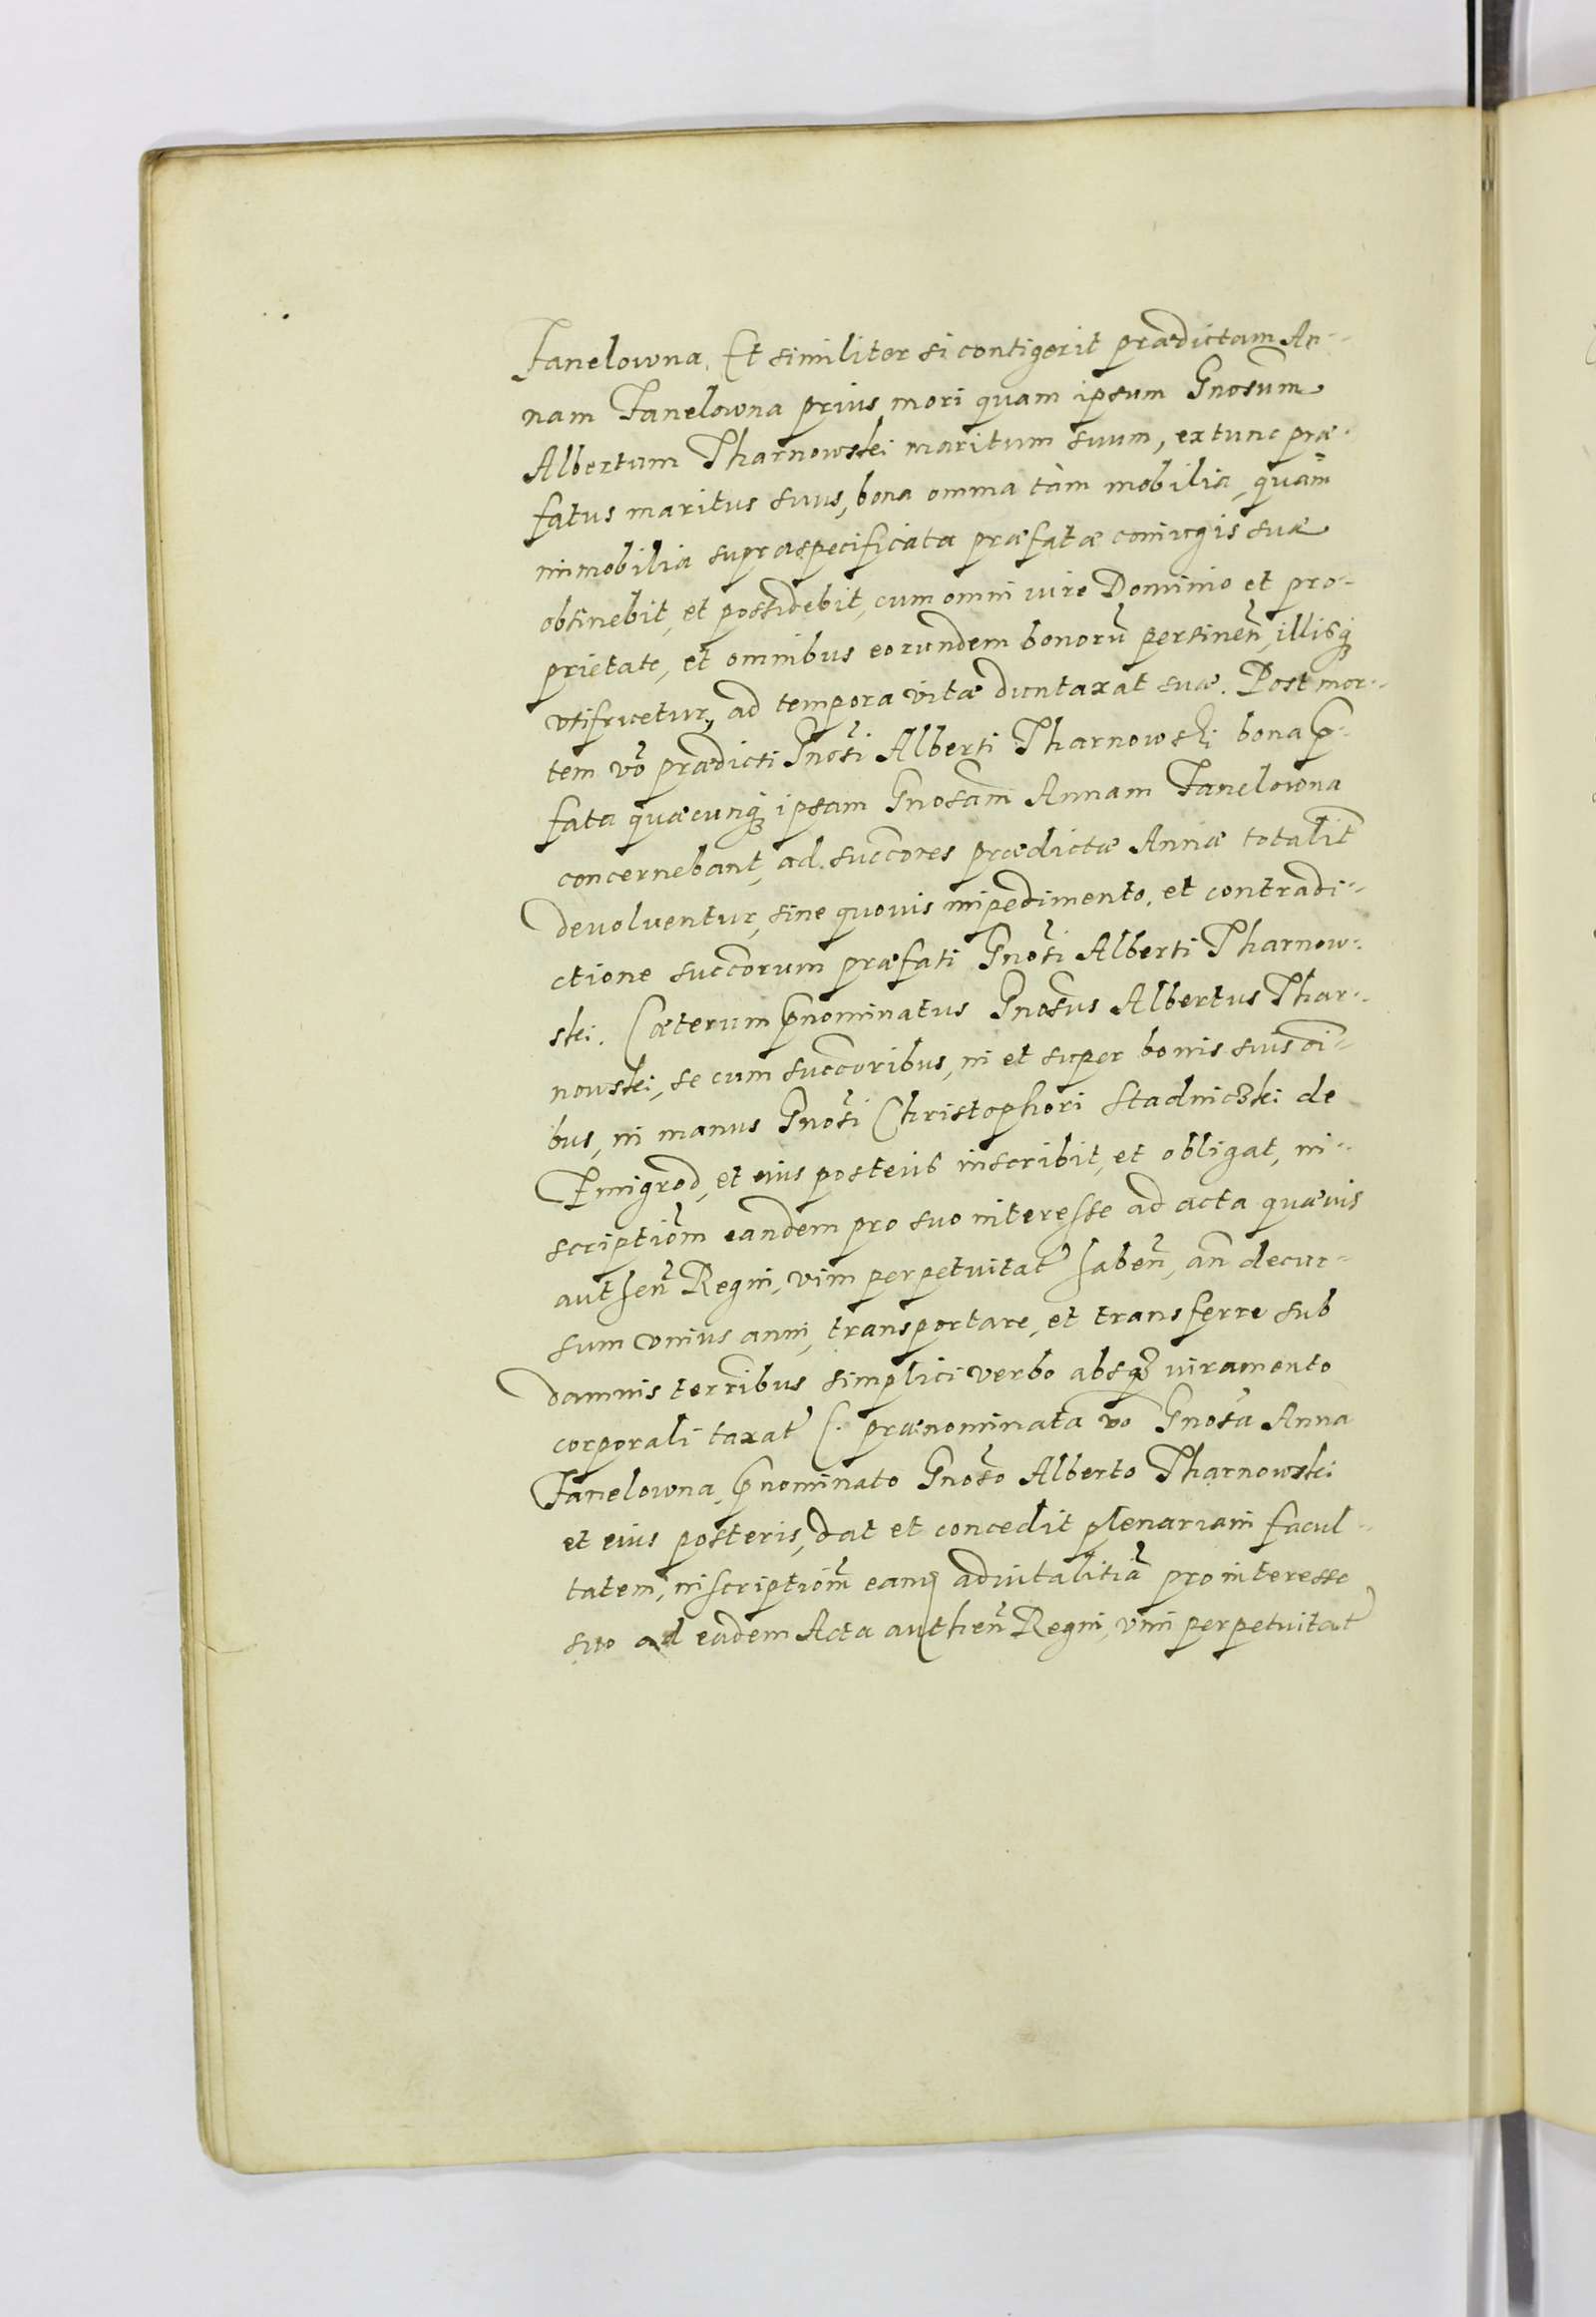 Fanelowna. Et similiter si contigerit prædictam An-
nam Fanelowna prius mori quam ipsum Gnosum
Albertum Tharnowski maritum suum, extunc præ-
fatus maritus suus, bona omnia tàm mobilia, quàm
immobilia supraspecificata præfatæ coniugis suæ
obtinebit, et possidebit, cum omni iure Dominio et pro-
prietate, et omnibus eorundem bonorũ pertineñ, illisq;
vtifruetur, ad tempora vitæ duntaxat suæ. Post mor-
tem võ prædicti Gnosi Alberti Tharnowski bona p̃-
fata quæcunq; ipsam Gnosam Annam Fanelowna
concernebant, ad succores prædictæ Annæ totalit̃
deuoluentur, sine quouis impedimento, et contradi-
ctione succorum præfati Gnosi Alberti Tharnow-
ski. Cæterum p̃nominatus Gnosus Albertus Thar-
nowski, se cum succoribus, in et super bonis suis õi-
bus, in manus Gnosi Christophori Stadniczki de
Zmigrod, et eius posteris inscribit, et obligat, in-
scriptiõm eandem pro suo interesse ad acta quævis
autheñ Regni, vim perpetuitat̃ habeñ, añ decur-
sum vnius anni, transportare, et transferre sub
damnis terr̃ibus simplici verbo absq; iuramento
corporali taxat̃ prænominata võ Gnosa Anna
Fanelowna, p̃nominato Gnoso Alberto Tharnowski
et eius posteris, dat et concedit plenariam facul-
tatem, inscriptiõm eam aduitalitiã pro interesse
suo ad eadem Acta autheñ Regni, vim perpetuitat̃